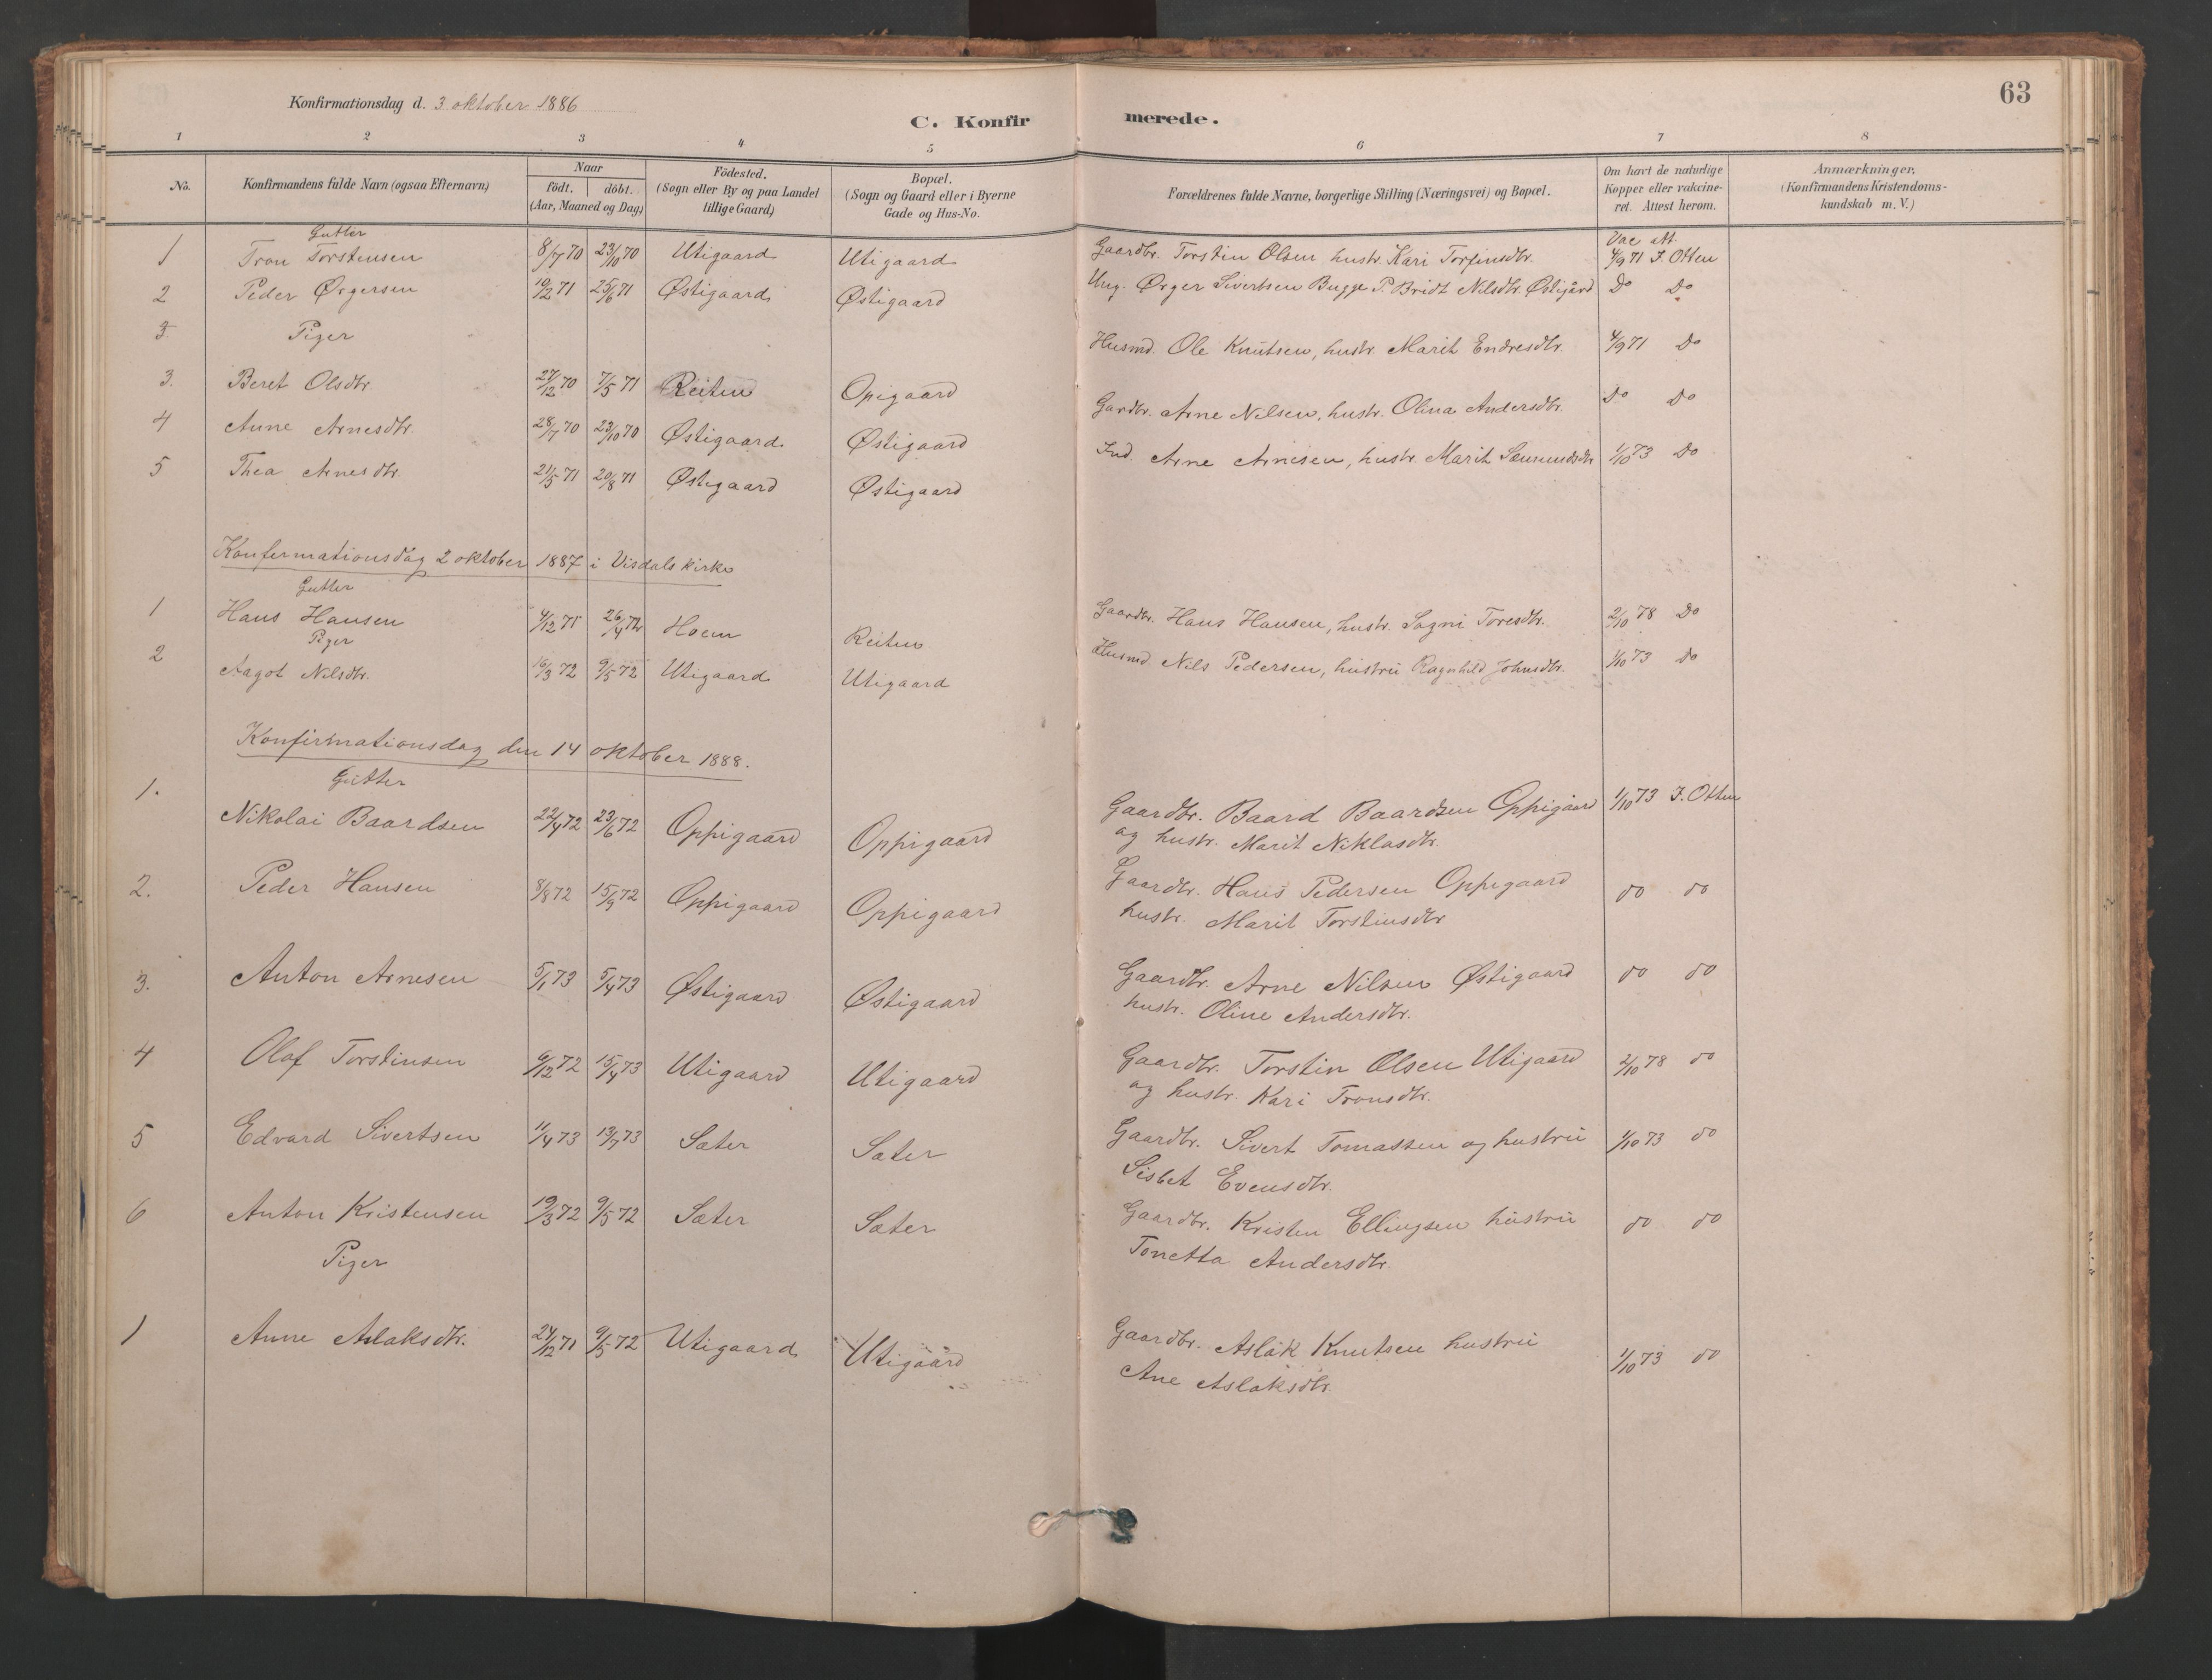 63
Konfirmationsdag d. 3 oktober 1886
C. Konfir merede.
1 2 3 4 5 6 7 8
No. Konfirmandens fulde Navn (ogsaa Efternavn) Naar födt. döbt. (Aar, Maaned og Dag) Födested. (Sogn eller By og paa Landet tillige Gaard) Bopæl. (Sogn og Gaard eller i Byerne Gade og Hus-No. Forældrenes fulde Navne, borgerlige Stilling (Næringsvei) og Bopæl. Om havt de naturlige Kopper eller vakcineret. Attest herom. Anmærkninger. (Konfirmandens Kristendomskundskab m. V.)
Gutter Vac att.
1 Tron Torstensen 8/7 70 23/10 70 Utigaard Utigaard Gaardbr. Torstin Olsen hustr. Kari Torfinsdtr. 4/9 71 J. Otten
2 Peder Ørgersen 19/2 71 25/6 71 Østigaard Østigaard Ung. Ørger Sivertsen Bugge P. Bridt Nilsdtr. Østigård Do Do
3 Piger
3. Beret Olsdtr. 27/12 70 7/5 71 Reiten Opigaard Husmd. Ole Knutsen, hustr. Marit Endresdtr. 4/9 71 Do
4 Anne Arnesdtr. 28/7 70 23/10 70 Østigaard Østigaard Gardbr. Arne Nilsen, hustr. Olina Andersdtr. Do Do
5 Thea Arnesdtr. 21/5 71 20/8 71 Østigaard Østigaard Ind. Arne Arnesen, hustr. Marit Sæmundsdtr 1/10 73 Do
Konfermationsdag 2 oktober 1887 i Visdals kirke
Gutter
1 Hans Hansen 4/12 71 26/4 72 Hoem Reiten Gaardbr. Hans Hansen, hustr. Sagni Toresdtr. 2/10 78 Do
Piger
2 Aagot Nilsdtr. 16/3 72 9/5 72 Utigaard Utigaard Husmd Nils Pedersen, hustru Ragnhild Johnsdtr. 1/10 73 Do
Konfirmationsdag den 14 oktober 1888.
Gutter
1. Nikolai Baardsen 22/4 72 23/6 72 Oppigaard Oppigaard Gaardbr. Baard Baardsen Oppigaard 1/10 73 J. Otten
og hustr. Marit Niklasdtr.
2. Peder Hansen 8/8 72 15/9 72 Oppigaard Oppigaard Gaardbr. Hans Pedersen Oppegaard do do
hustr. Marit Torstinsdtr
3. Anton Arnesen 5/1 73 5/4 73 Østigaard Østigaard Gaardbr. Arne Nilsen Østigaard do do
hustr. Oline Andersdtr.
4 Olaf Torstinsen 6/12 72 15/4 73 Utigaard Utigaard Gaardbr. Torstin Olsen Utigaard 2/10 78 do
og hustr. Kari Tronsdtr.
5 Edvard Sivertsen 11/4 73 13/7 73 Sæter Sæter Gaardbr. Sivert Tomassen og hustru 1/10 73 do
Sisbet Evensdtr.
6 Anton Kristensen 19/3 72 9/5 72 Sæter Sæter Gaardbr. Kristen Ellingsen hustru do do
Tonetta Andersdtr
Piger
1 Anne Aslaksdtr. 24/12 71 9/5 72 Utigaard Utigaard Gaardbr. Aslak Knutsen hustru 1/10 73 do
Ane Aslaksdtr.